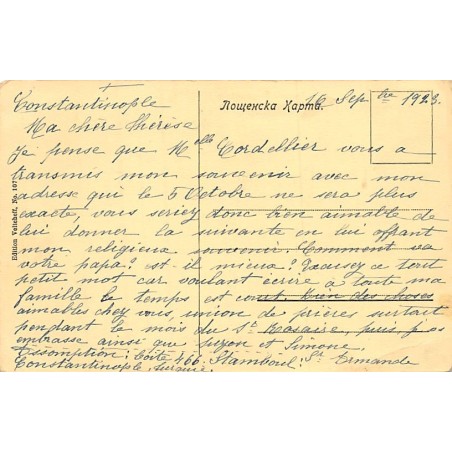 Constantinople
Пощенска Карта.
16 Sep bre 1923.
Ma chère Thérèse
Je pense que Melle Cordellier vous a
transmis mon souvenir avec mon
adresse qui le 5 Octobre ne sera plus
exacte, vous seriez donc bien aimable de
lui donner la suivante en lui offrant
mon religieux souvenir. Comment va
votre papa? est-il mieux? Excusez ce tout
petit mot car voulant écrire à toute ma
famille le temps est court. Bien des choses
aimables chez vous, union de prières surtout
pendant le mois du St Rosaire, puis je vous
embrasse ainsi que Suzon et Simone.
Sr Ermande
Assomption: Boîte 466. Stamboul:
Constantinople, Turquie.
Edition Veltcheff, No. 167